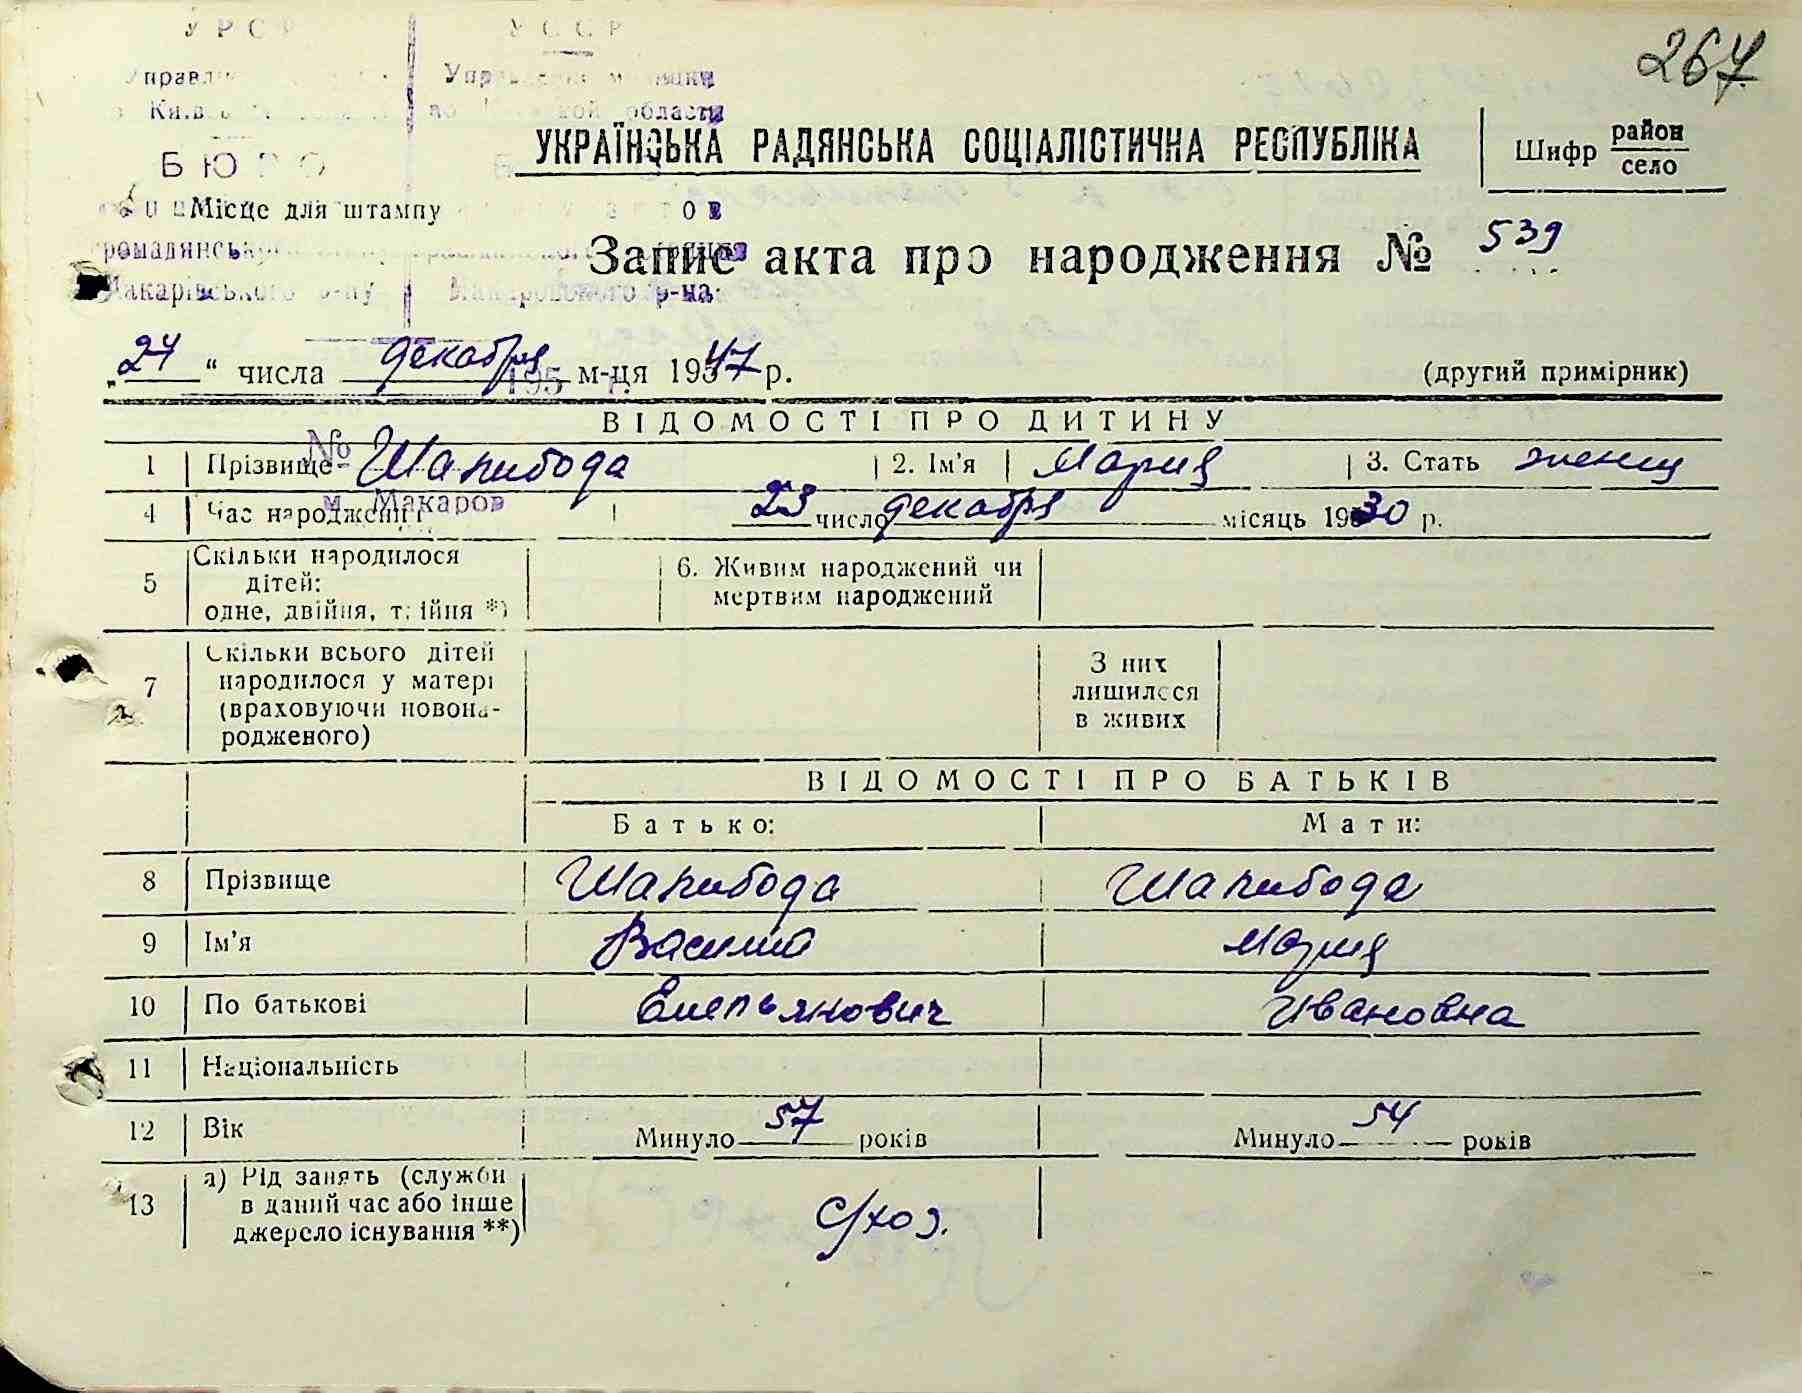 267
УРСР УССР
Управл
БЮРО
Місце для штампу
громадянського
Макарівського р-ну Макаровского р-на
УКРАЇНСЬКА РАДЯНСЬКА СОЦІАЛІСТИЧНА РЕСПУБЛІКА
Шифр район
село
Запис акта про народження № 539
„24“ числа декабря м-ця 1947 р. (другий примірник)
195 г.
ВІДОМОСТІ ПРО ДИТИНУ
№
1 Прізвище Шалибода 2. Ім'я Мария 3. Стать женщ
м. Макаров
4 Час народження 23 число декабря місяць 1930 р.
5 Скільки народилося дітей: одне, двійня, трійня *) 6. Живим народжений чи мертвим народжений
7 Скільки всього дітей народилося у матері (враховуючи новонародженого) З них лишилося в живих
ВІДОМОСТІ ПРО БАТЬКІВ
Батько: Мати:
8 Прізвище Шалибода Шалибода
9 Ім'я Василий Мария
10 По батькові Емельянович Ивановна
11 Національність
12 Вік Минуло 57 років Минуло 54 років
13 а) Рід занять (служби в даний час або інше джерело існування **) с/хоз.